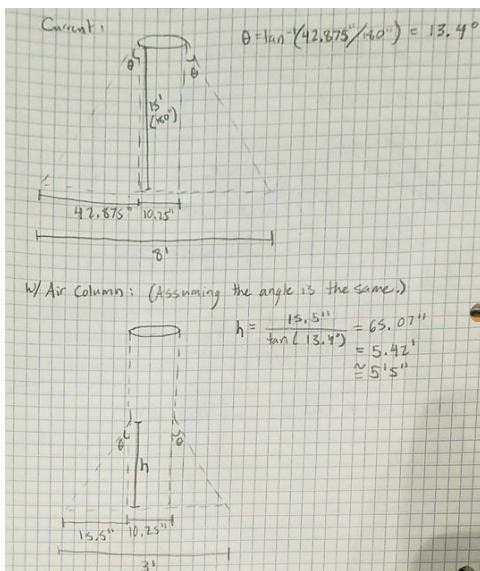 Current:
θ = tan⁻¹(42.875"/180") = 13.4°
θ θ
15'
(180")
42.875" 10.25"
8'
W/ Air Column: (Assuming the angle is the same.)
h = 15.5" / tan(13.4°) = 65.07"
= 5.42'
≅ 5'5"
θ θ
h
15.5" 10.25"
3'